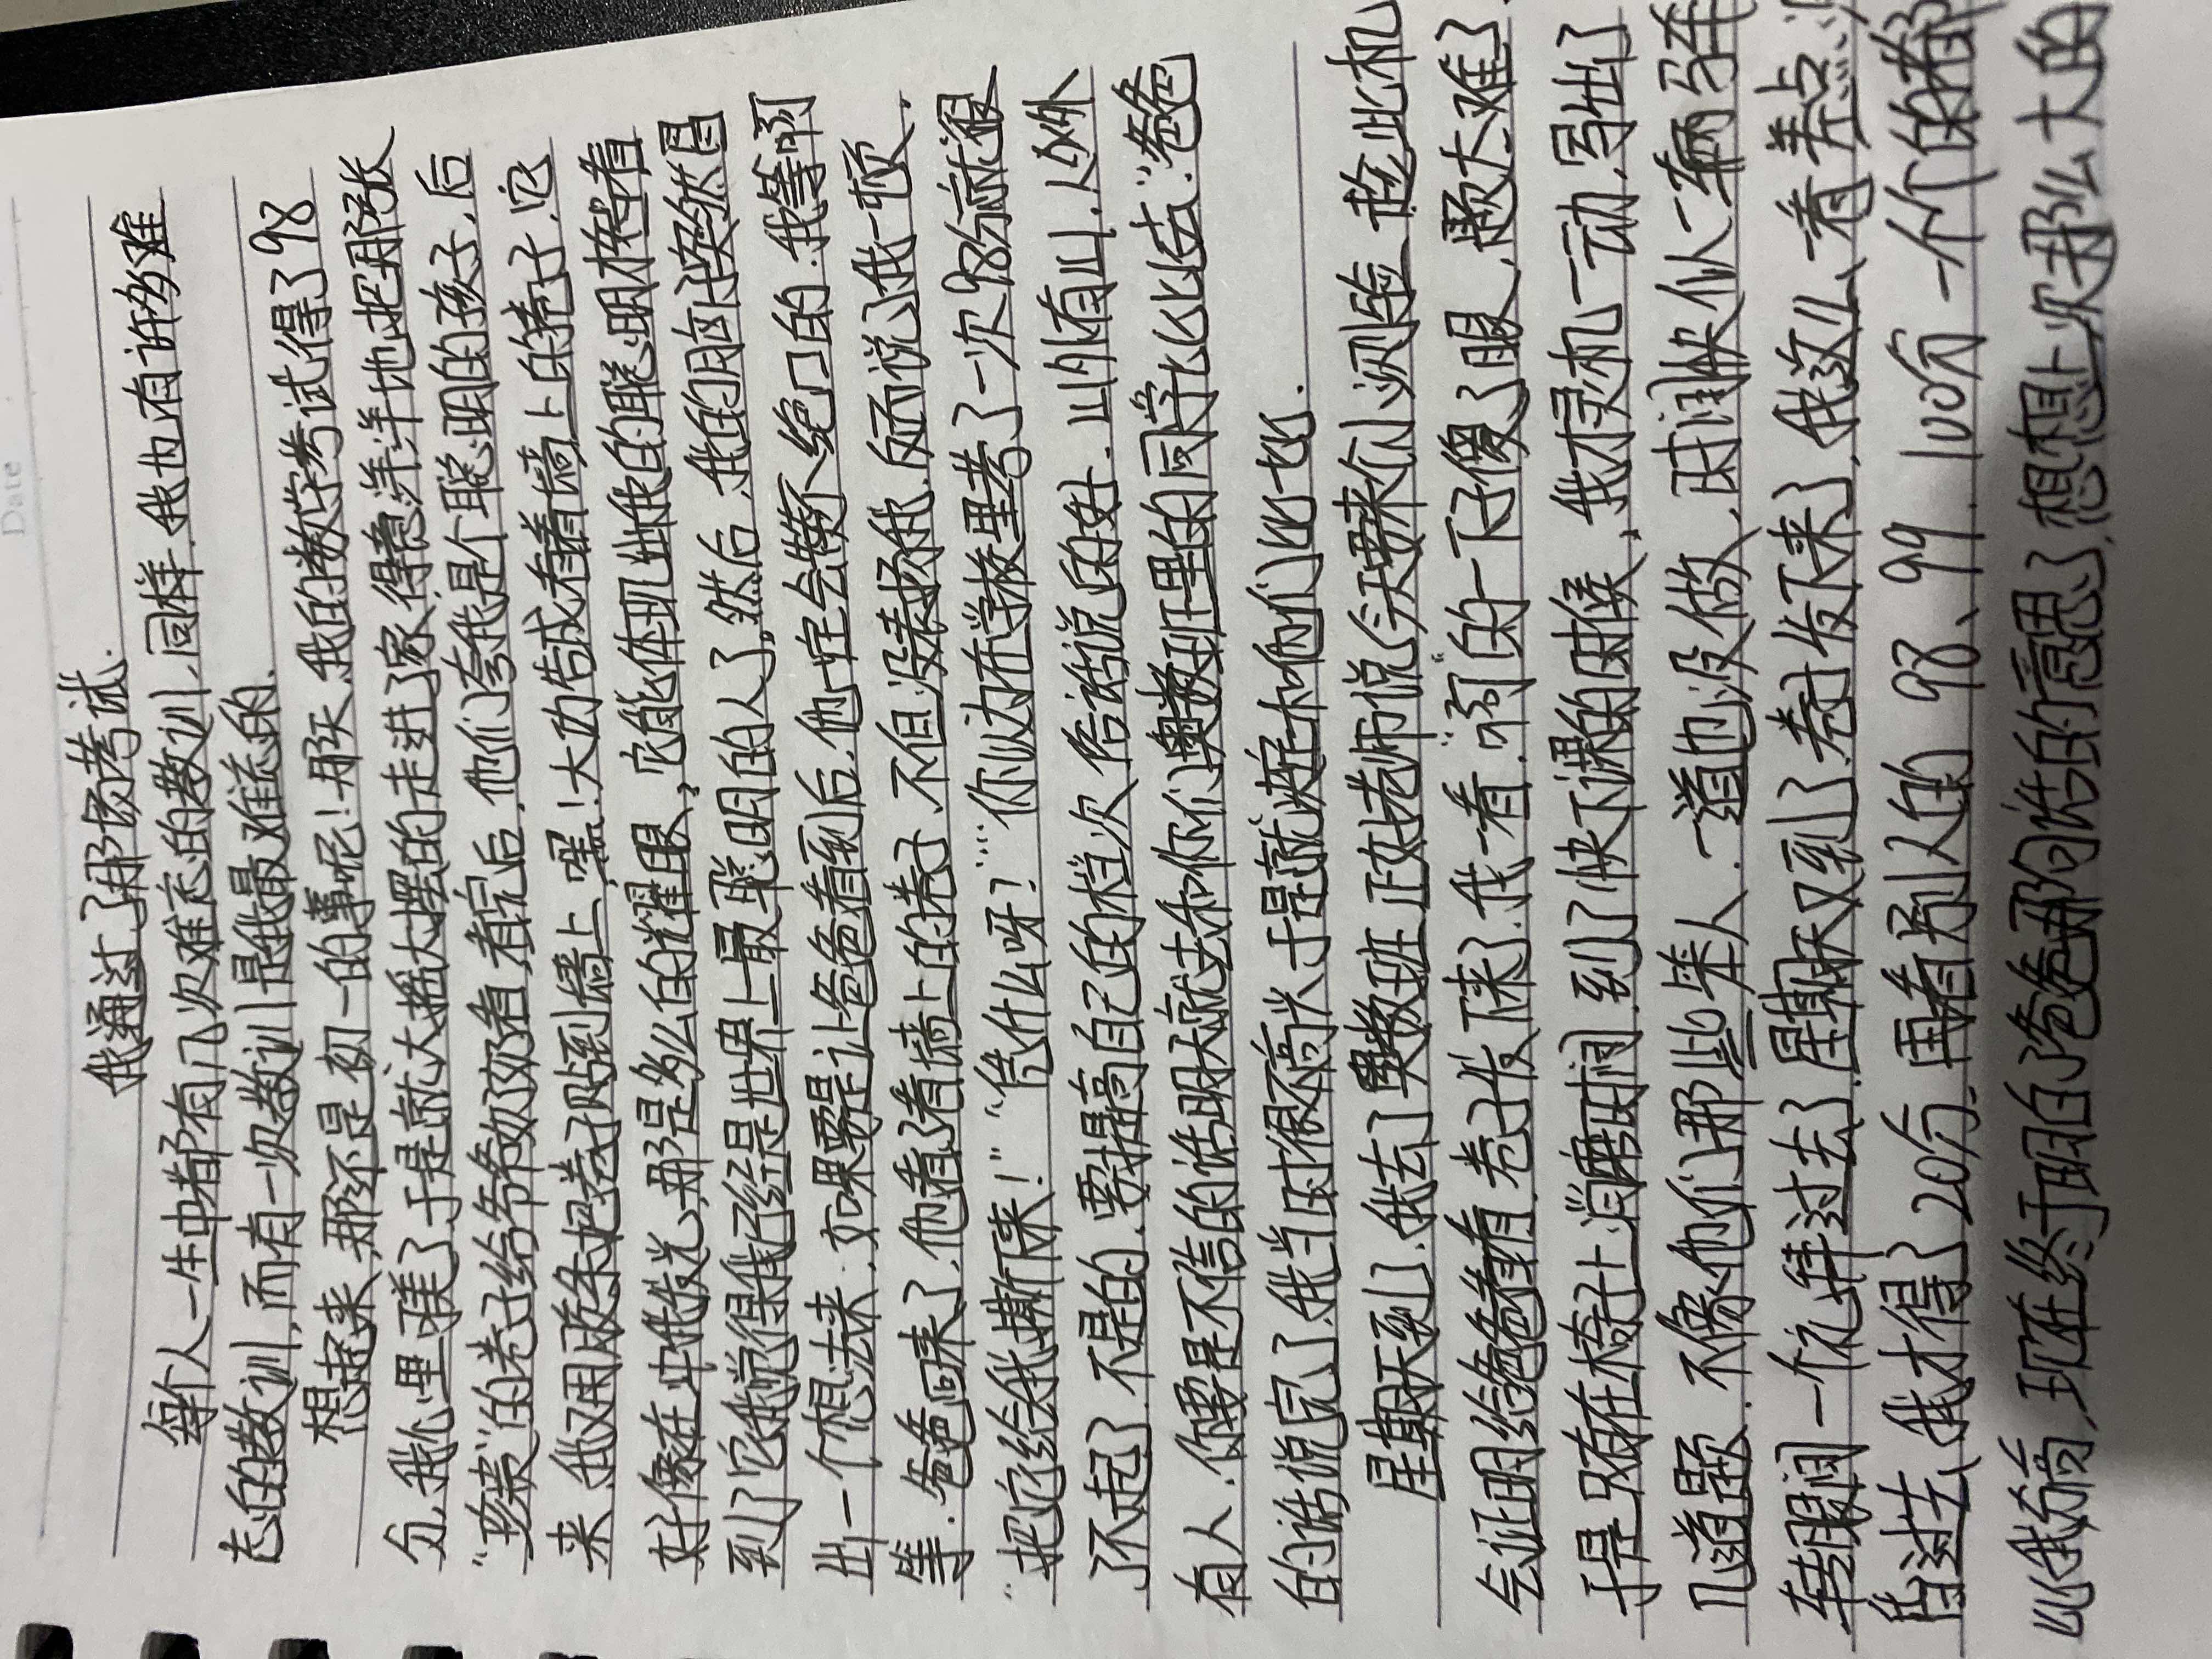 Date
我通过了那场考试.
每个人一生中都有几次难忘的教训,同样.我也有许多难
忘的教训,而有一次教训是我最难忘的.
想起来,那还是初一的事呢!那天.我的数学考试得了98
分,我心里美了.于是就大摇大摆的走进了家,得意洋洋地把那张
“珍装”的卷子给爷爷奶奶看,看完后,他们夸我是个聪明的孩子,后
来,我又用胶条把卷子贴到墙上,嘿!大功告成,看着墙上的卷子,它
好像在冲我发光,那是多么的耀眼,它能体现出我的聪明才智,看
到了它我觉得我已经是世界上最聪明的人了,然后,我的脑子突然冒
出一个想法来,如果要是让爸爸看到后,他一定会赞不绝口的.我等啊
等.爸爸回来了,他看了看墙上的卷子,不但没表扬我,反而说了我一顿.
“把它给我撕下来!”“凭什么呀?”“你以为在学校里考了一次98分就很
了不起了.不是的.要提高自己的档次,俗话说的好.山外有山,人外
有人.你要是不信的话明天就去和你们奥数班里的同学比比去.”爸爸
的话说完了.我当时很不高兴,于是就决定和他们比一比.
星期天到了.我去了奥数班,正好老师说今天要来个小测验,趁此机
会证明给爸爸看看.卷子发下来了.我一看.“啊”的一下子傻了眼,题太难了.
于是只有在椅子上消磨时间.到了快下课的时候,我才灵机一动,写出了
几道题.不像他们那些笨人.一道也没做,时间快似一辆马车
转眼间一个礼拜过去了.星期天又到了.卷子发下来了,我这儿一看,差点
背过去,我才得了20分.再看别人的 98、99.100分一个个的都
比我分高,现在终于明白了爸爸那句话的意思了,想想上次那么大的